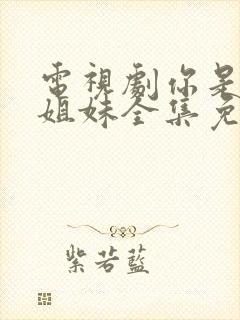 電視劇你是
姐妹全集免
紫若藍